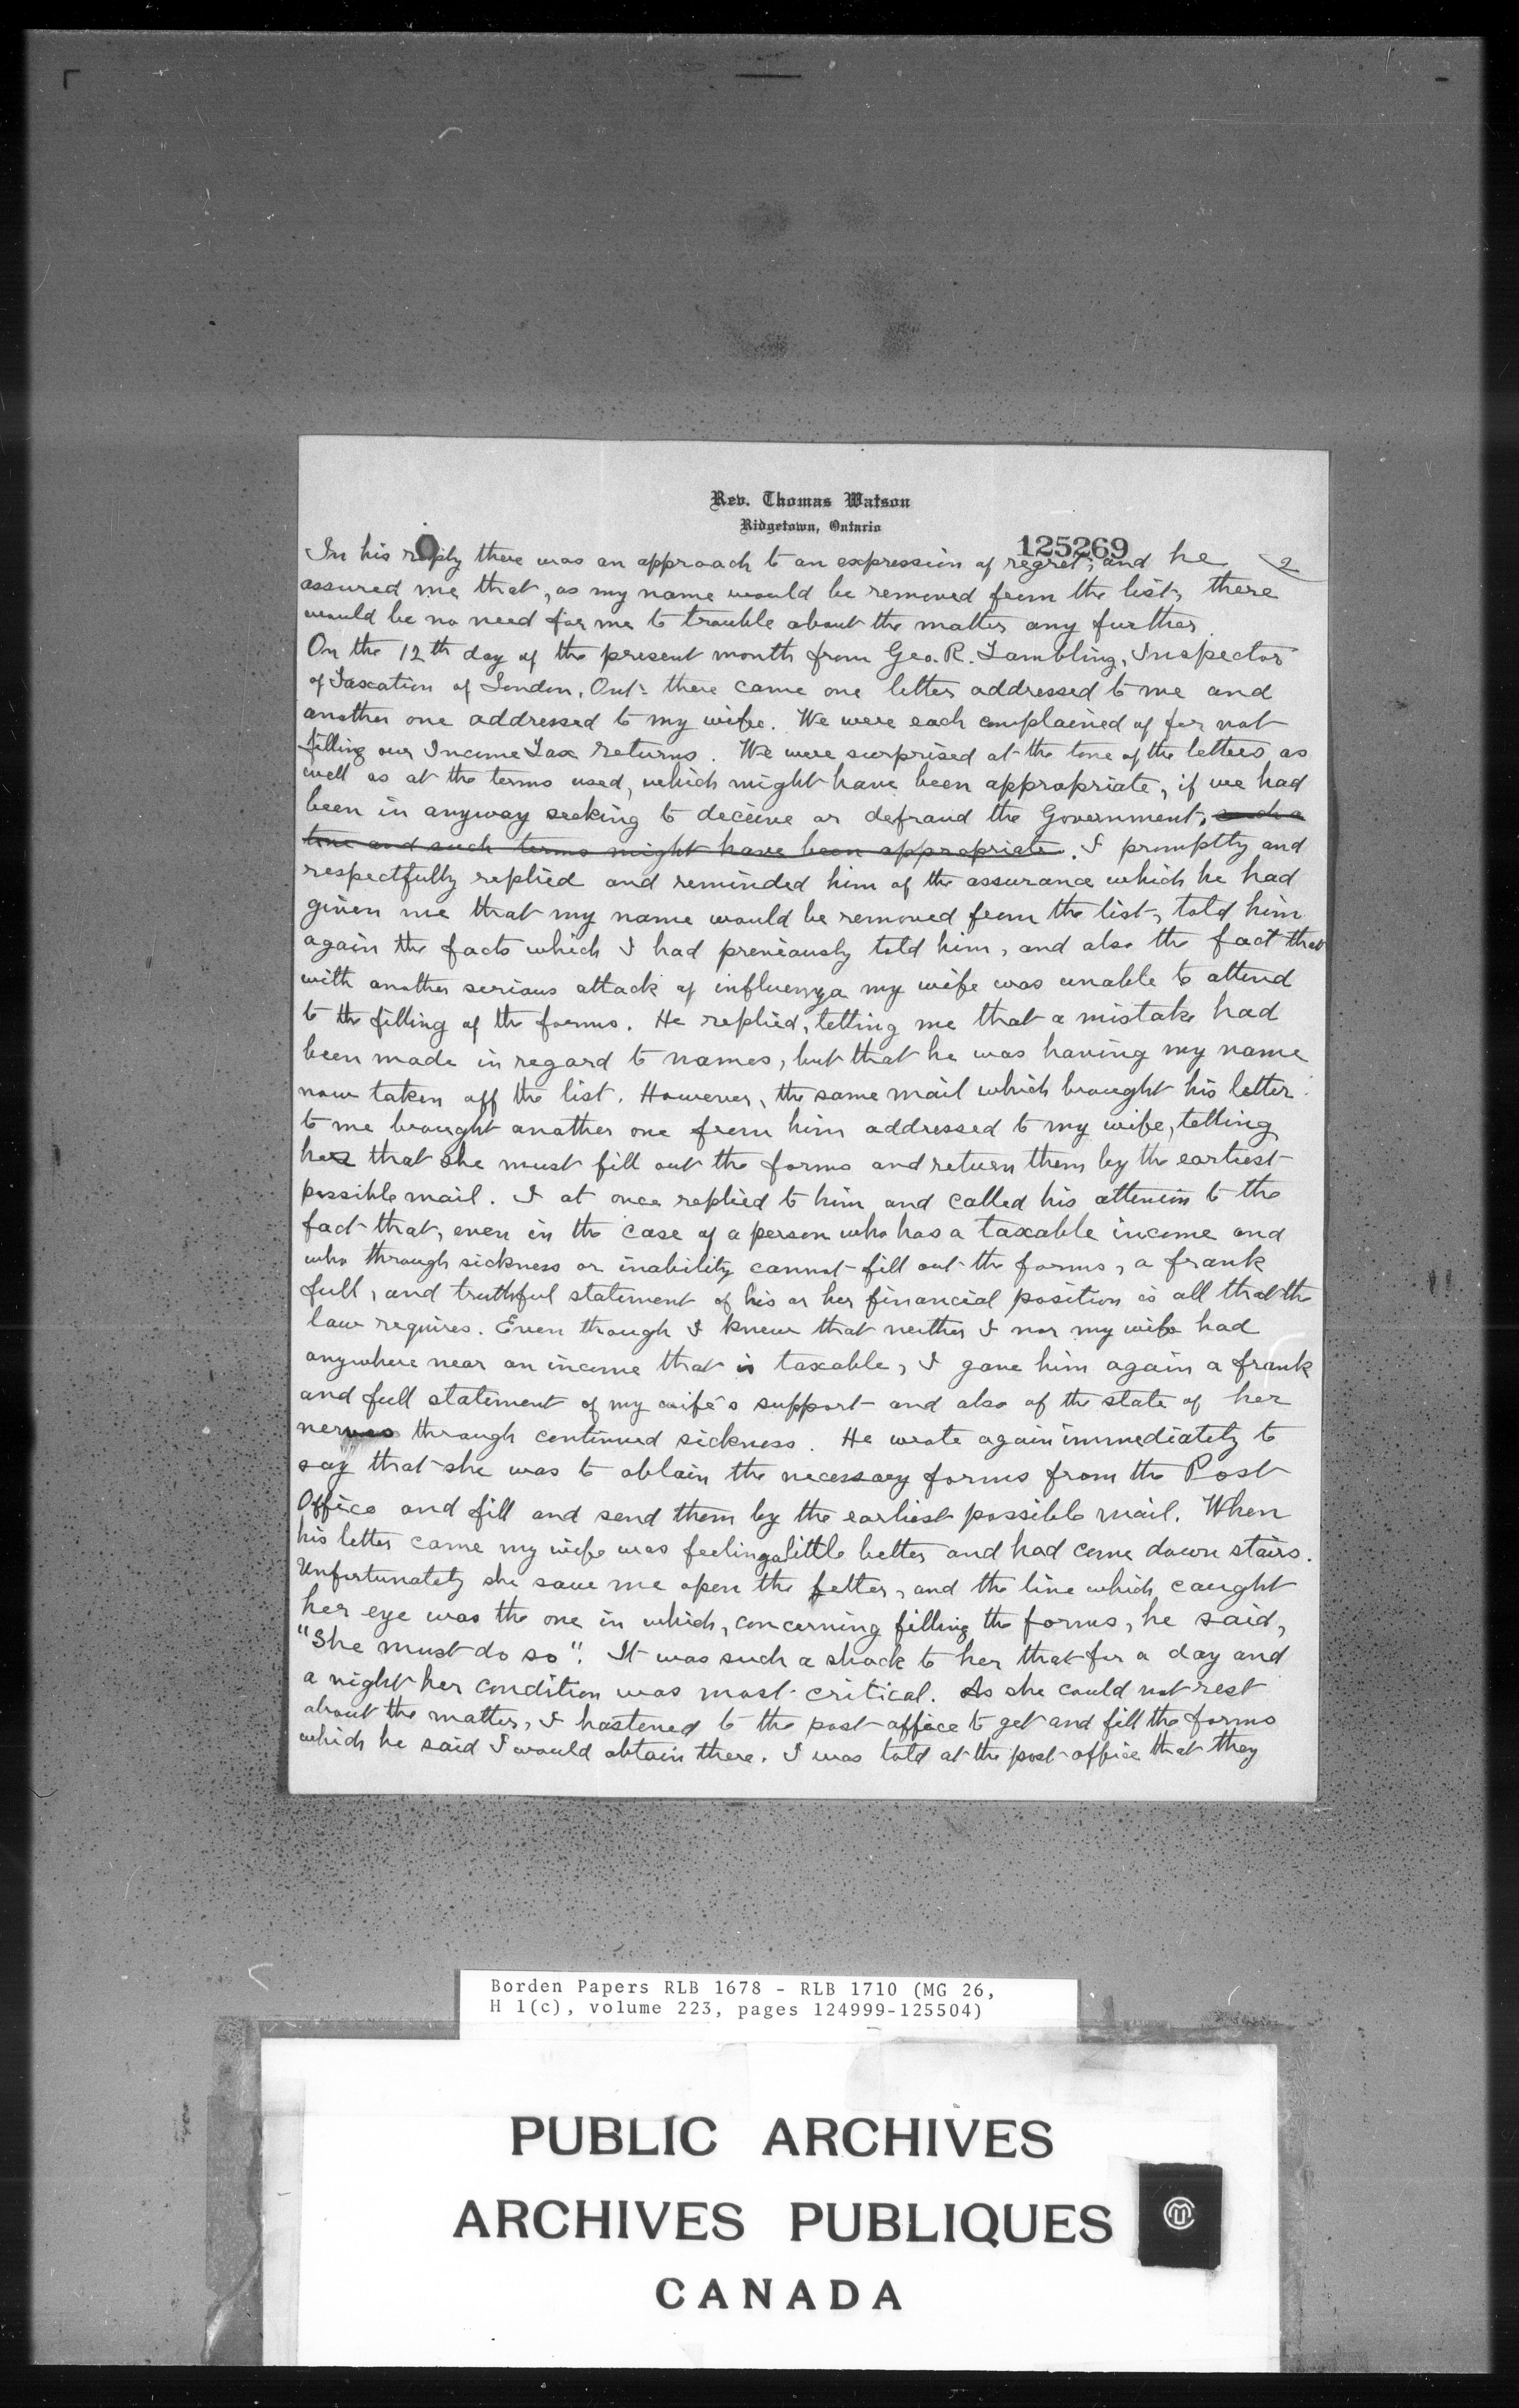 Rev. Thomas Watson
Ridgetown, Ontario
125269
2
In his reply there was an approach to an expression of regret, and he
assured me that, as my name would be removed from the list, there
would be no need for me to trouble about the matter any further.
On the 12th day of the present month from Geo. R. Tambling, Inspector
of Taxation of London, Ont. there came one letter addressed to me and
another one addressed to my wife. We were each complained of for not
filling our Income Tax returns. We were surprised at the tone of the letters as
well as at the terms used, which might have been appropriate, if we had
been in anyway seeking to deceive or defraud the Government, such a
tone and such terms might have been appropriate. I promptly and
respectfully replied and reminded him of the assurance which he had
given me that my name would be removed from the list, told him
again the facts which I had previously told him, and also the fact that
with another serious attack of influenza my wife was unable to attend
to the filling of the forms. He replied, telling me that a mistake had
been made in regard to names, but that he was having my name
now taken off the list. However, the same mail which brought his letter
to me brought another one from him addressed to my wife, telling
her that she must fill out the forms and return them by the earliest
possible mail. I at once replied to him and called his attention to the
fact that, even in the case of a person who has a taxable income and
who through sickness or inability cannot fill out the forms, a frank
full, and truthful statement of his or her financial position is all that the
law requires. Even though I knew that neither I nor my wife had
anywhere near an income that is taxable, I gave him again a frank
and full statement of my wife's support and also of the state of her
nerves through continued sickness. He wrote again immediately to
say that she was to obtain the necessary forms from the Post
Office and fill and send them by the earliest possible mail. When
his letter came my wife was feeling a little better and had come down stairs.
Unfortunately she saw me open the letter, and the line which caught
her eye was the one in which, concerning filling the forms, he said,
"She must do so". It was such a shock to her that for a day and
a night her condition was most critical. As she could not rest
about the matter, I hastened to the post office to get and fill the forms
which he said I would obtain there. I was told at the post office that they
Borden Papers RLB 1678 - RLB 1710 (MG 26,
H 1(c), volume 223, pages 124999-125504)
PUBLIC ARCHIVES
ARCHIVES PUBLIQUES
CANADA